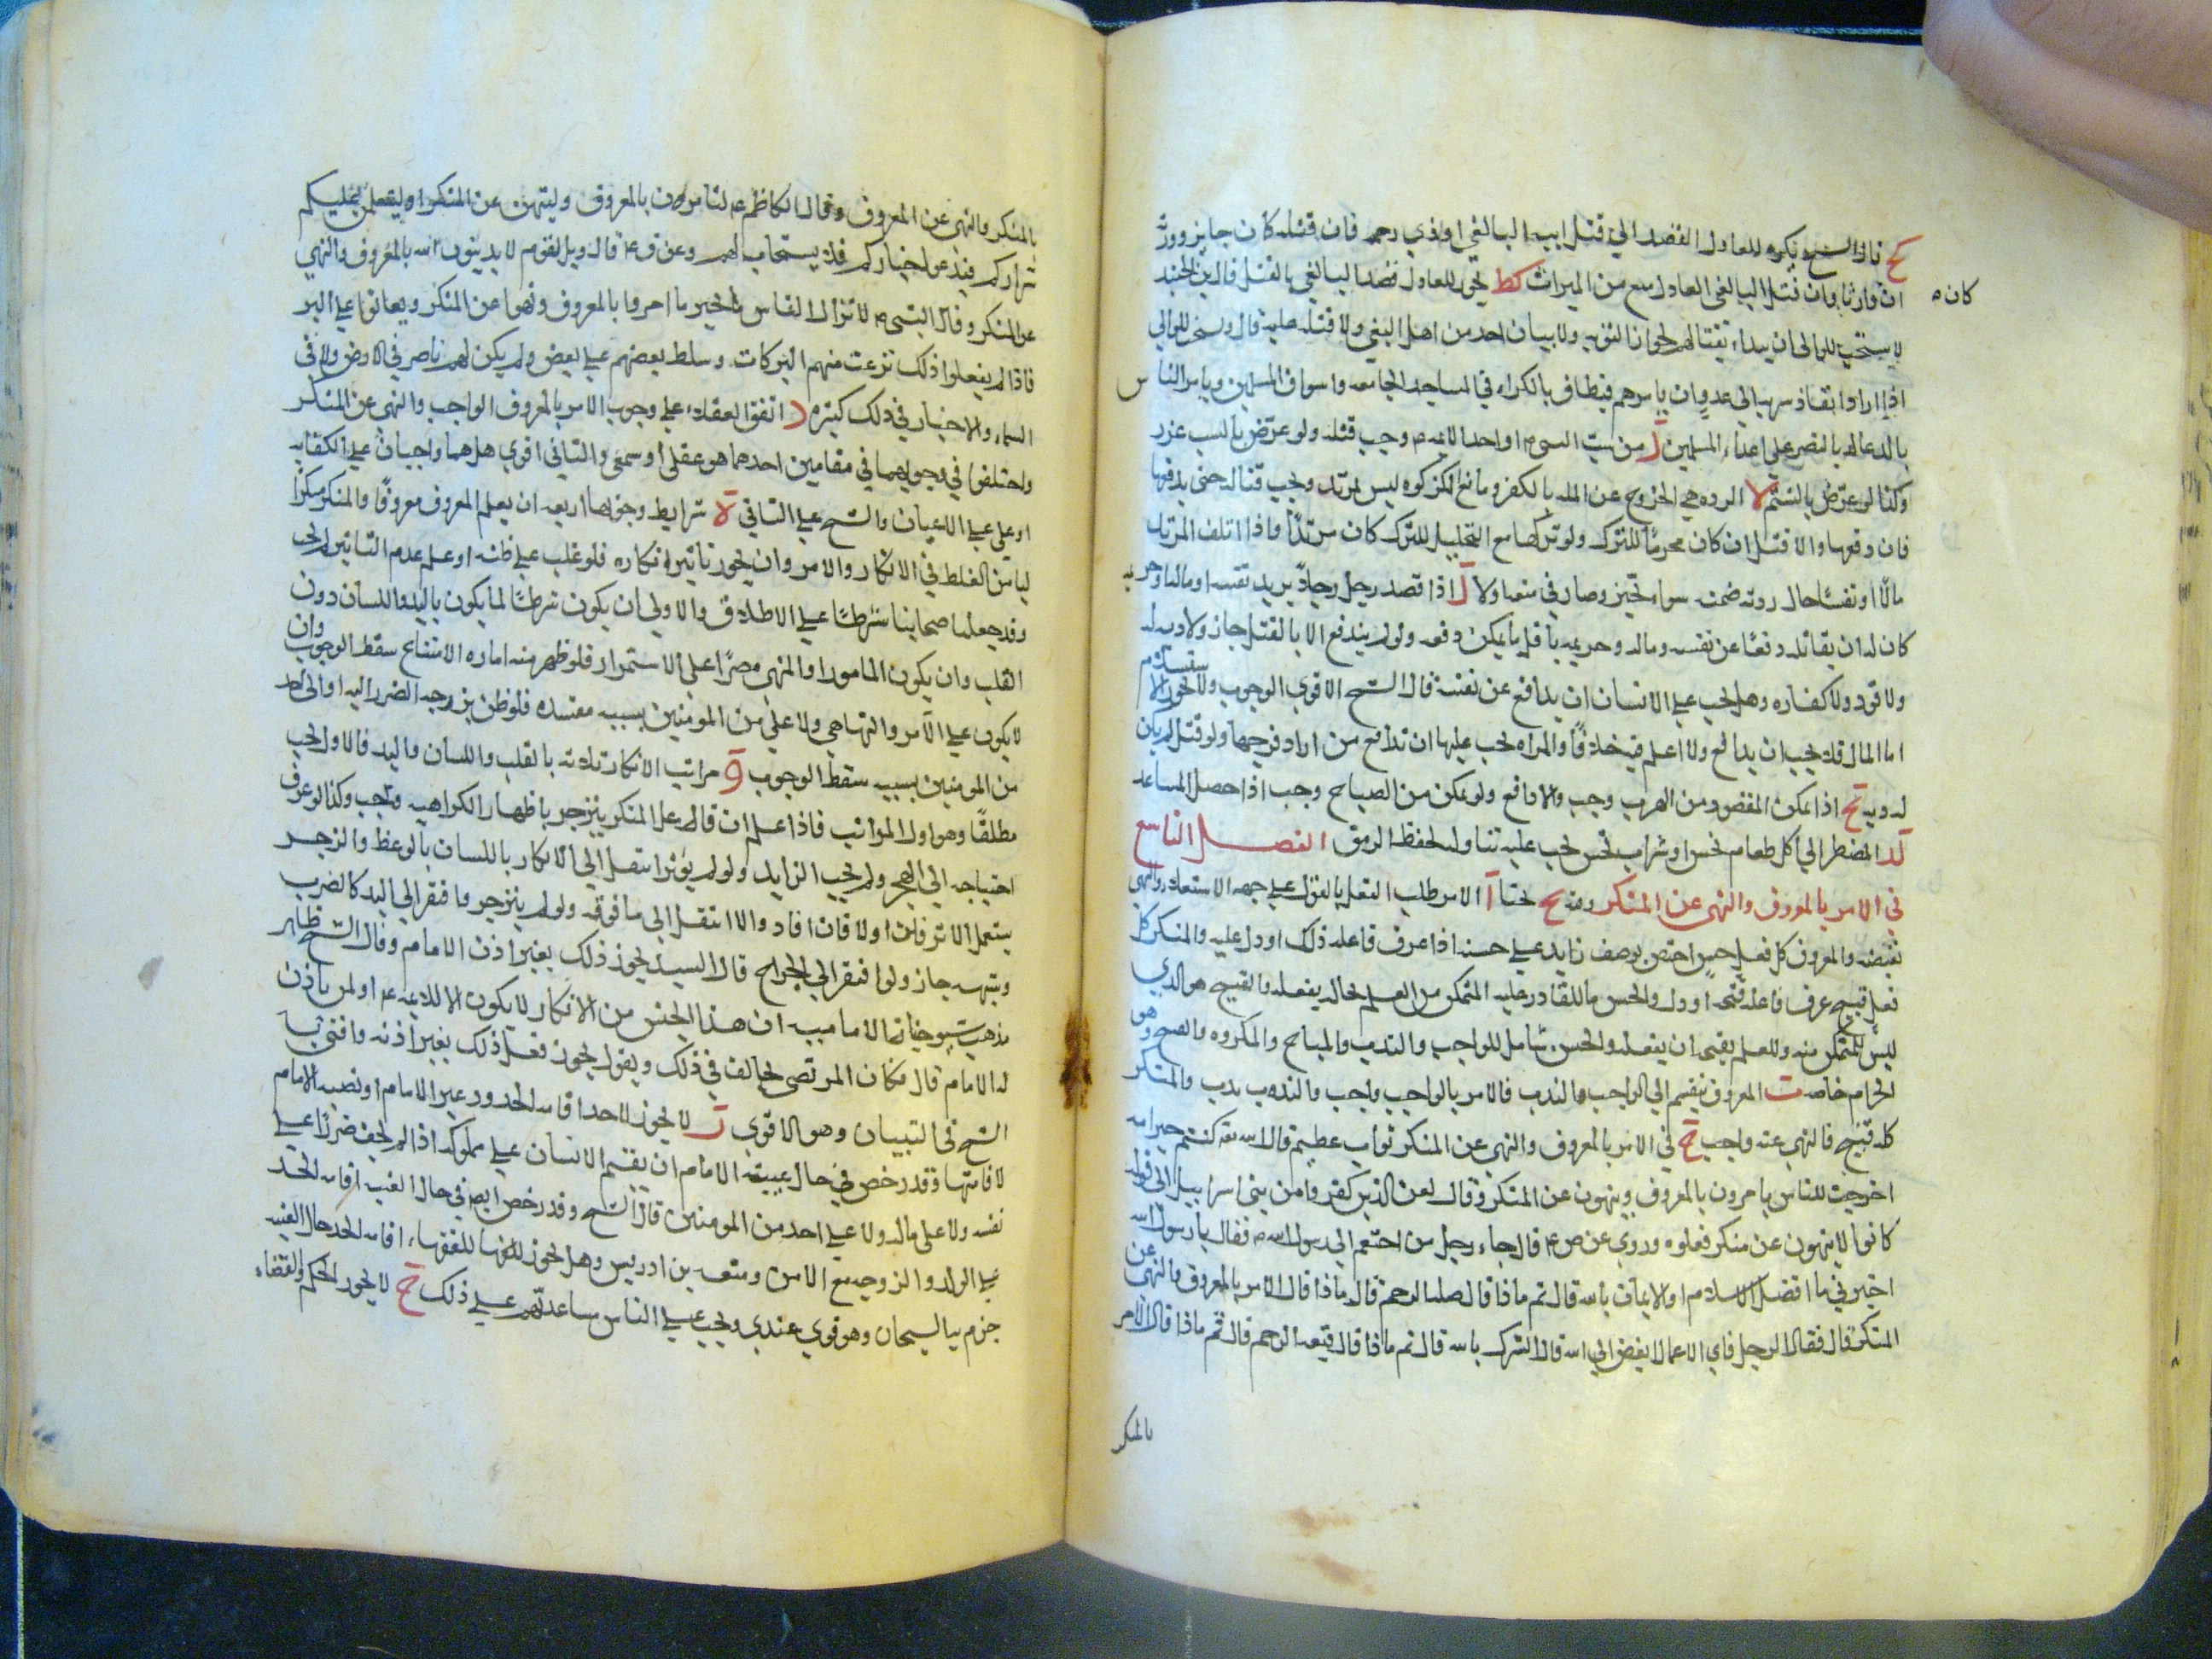 كح قال الشيخ يكره للعادل القصد الي قتل ابيه الباغي او ذي رحمه فان قتله كان جايز وورثه
كان
ان كان وارثا وان قتل الباغي العادل منع من الميراث كط يجوز للعادل قصد الباغي بالقتل قال ابن الجنيد
لا يستحب للوالي ان يبداء بقتالهم لجواز التوبه ولا ببيات احد من اهل البغي ولا قتله صلبه قال ويستحب للوالي
اذا اراد انفاذ سريه الي عدو ان يامرهم فيطاف بالكراه في المساجد الجامعه واسواق المسلمين ويامر الناس
بالدعا لهم بالنصر علي اعداء المسلمين ل من سب النبي ص او احد الايمه ع وجب قتله ولو عرض بالسب عزر
وكذا لو عرض بالشتم لا الرده هي الخروج عن المله بالكفر ومانع الزكوه ليس بمرتد ويجب قتاله حتي يدفعها
فان دفعها والا قتل ان كان محرما للترك ولو تركها مع التحليل للترك كان مرتدا واذا اتلف المرتد
مالا او نفسا حال ردته ضمنه سواء تحيز وصار في منعه او لا ل اذا قصد رجل رجلا يريد نفسه او ماله او حريمه
كان له ان يقاتله دفعا عن نفسه وماله وحريمه باقل ما يمكن دفعه ولو لم يندفع الا بالقتل جاز ولا ديه له
ولا قود ولا كفاره وهل يجب علي الانسان ان يدافع عن نفسه قال الشيخ الاقوي الوجوب ولا يجوز الاستسلام
اما المال فلا يجب ان يدافع ولا اعلم فيه خلافا والمراه يجب عليها ان تدافع من اراد فرجها ولو قتل لم يكن
له ديه لج اذا تمكن المقصود من الهرب وجب والا دافع ولو تمكن من الصياح وجب اذا حصل المساعد
لد المضطر الي اكل طعام نجس او شراب نجس يجب عليه تناوله لحفظ الرمق الفصل التاسع
في الامر بالمعروف والنهي عن المنكر وفيه ح بحثا آ الامر طلب الفعل بالقول علي جهه الاستعلاء والنهي
نقيضه والمعروف كل فعل حسن اختص بوصف زايد علي حسنه اذا عرف فاعله ذلك او دل عليه والمنكر كل
فعل قبيح عرف فاعله قبحه او دل والحسن ما للقادر عليه المتمكن من العلم بحاله يفعله والقبيح هو الذي
ليس للمتمكن منه وللعلم بقبحه ان يفعله والحسن شامل للواجب والندب والمباح والمكروه والقبيح وهو
الحرام خاصه ب المعروف ينقسم الي الواجب والندب فالامر بالواجب واجب والندوب ندب والمنكر
كله قبيح فالنهي عنه واجب ج في الامر بالمعروف والنهي عن المنكر ثواب عظيم قال الله تعه كنتم خير امه
اخرجت للناس يامرون بالمعروف وينهون عن المنكر وقال لعن الذين كفروا من بني اسراييل الي قوله
كانوا لا ينهون عن منكر فعلوه وروي عن ص ع قال جاء رجل من خثعم الي رسول الله ص فقال يا رسول الله
اخبرني ما افضل الاسلام او الايمان بالله قال ثم ماذا قال صله الرحم قال ماذا قال الامر بالمعروف والنهي عن
المنكر قال فقال الرجل فاي الاعمال ابغض الي الله قال الشرك بالله قال ثم ماذا قال قطيعه الرحم قال ثم ماذا قال الامر
بالمنكر
بالمنكر والنهي عن المعروف وقال الكاظم ع لتامرون بالمعروف ولينهن عن المنكر او ليستعملن عليكم
شراركم فيدعو اخياركم فلا يستجاب لهم وعن ق ع قال ويل لقوم لا يدينون الله بالمعروف والنهي
عن المنكر وقال النبي ص لا تزال الناس بالخير ما امروا بالمعروف ونهوا عن المنكر ويعاونوا علي البر
فاذا لم يفعلوا ذلك نزعت منهم البركات وسلط بعضهم علي بعض ولم يكن لهم ناصر في الارض ولا في
السماء والاخبار في ذلك كثيره د اتفق العقلاء علي وجوب الامر بالمعروف الواجب والنهي عن المنكر
واختلفوا في وجوبهما في مقامين احدهما هو عقلي او سمعي والثاني اقوي هل هما واجبان علي الكفايه
او علي علي الاعيان والشيخ علي الثاني ه شرايط وجوبهما اربعه ان يعلم المعروف معروفا والمنكر منكرا
ليامن الغلط في الانكار والامر وان يجوز تاثير انكاره فلو غلب علي ظنه او علم عدم التاثير لم يجب
وقد جعله اصحابنا شرطا علي الاطلاق والاولي ان يكون شرطا لما يكون باليد واللسان دون
القلب وان يكون المامور او المنهي مصرا علي الاستمرار فلو ظهر منه اماره الامتناع سقط الوجوب وان
لا يكون علي الآمر والناهي ولا علي من المومنين بسببه مفسده فلو ظن توجه الضرر اليه او الي احد
من المومنين بسببه سقط الوجوب و مراتب الانكار ثلاثه بالقلب واللسان واليد فالاول يجب
مطلقا وهو اول المراتب فاذا علم ان فاعل المنكر ينزجر باظهار الكراهيه وجب وكذا لو عرف
احتياجه الي الهجر ولم يجب الزايد ولو لم يؤثر انتقل الي الانكار باللسان بالوعظ والزجر
يستعمل الايسر فان اولا فان افاد والا انتقل الي ما فوقه ولو لم ينزجر وافتقر الي اليد كالضرب
وشبهه جاز ولو افتقر الي الجراح قال السيد يجوز ذلك بغير اذن الامام وقال الشيخ ظاهر
مذهب شيوخنا الاماميه ان هذا الجنس من الانكار لا يكون الا للايمه ع او لمن ياذن
له الامام قال وكان المرتضي يخالف في ذلك ويقول يجوز فعل ذلك بغير اذنه وافتي به
الشيخ في التبيان وهو الاقوي ز لا يجوز لاحد اقامه الحدود غير الامام او نصبه الامام
لاقامتها وقد رخص في حال غيبه الامام ان يقيم الانسان علي مملوكه اذا لم يخف ضررا علي
نفسه ولا علي ماله ولا علي احد من المومنين قال الشيخ وقد رخص ايض في حال الغيبه اقامه الحد
علي الولد والزوجه مع الامن ومنعه بن ادريس وهل يجوز للفقهاء اقامه الحد حال الغيبه
جزم به الشيخان وهو قوي عندي ويجب علي الناس مساعدتهم علي ذلك ح لا يجوز الحكم والقضاء